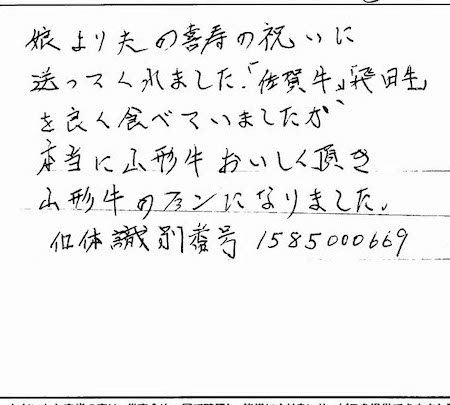 娘より夫の喜寿の祝いに
送ってくれました.「佐賀牛」「飛田牛」
を良く食べていましたが、
本当に山形牛おいしく頂き
山形牛のファンになりました.
個体識別番号 1585000669